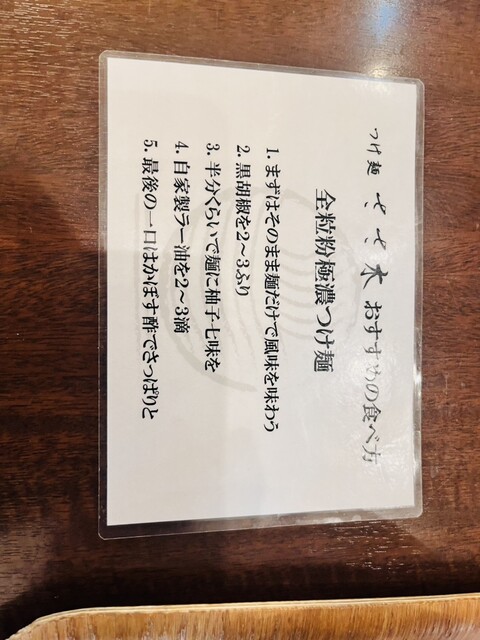 つけ麺 せゝ木 おすすめの食べ方
全粒粉極濃つけ麺
1. まずはそのまま麺だけで風味を味わう
2. 黒胡椒を2〜3ふり
3. 半分くらいで麺に柚子七味を
4. 自家製ラー油を2〜3滴
5. 最後の一口はかぼす酢でさっぱりと